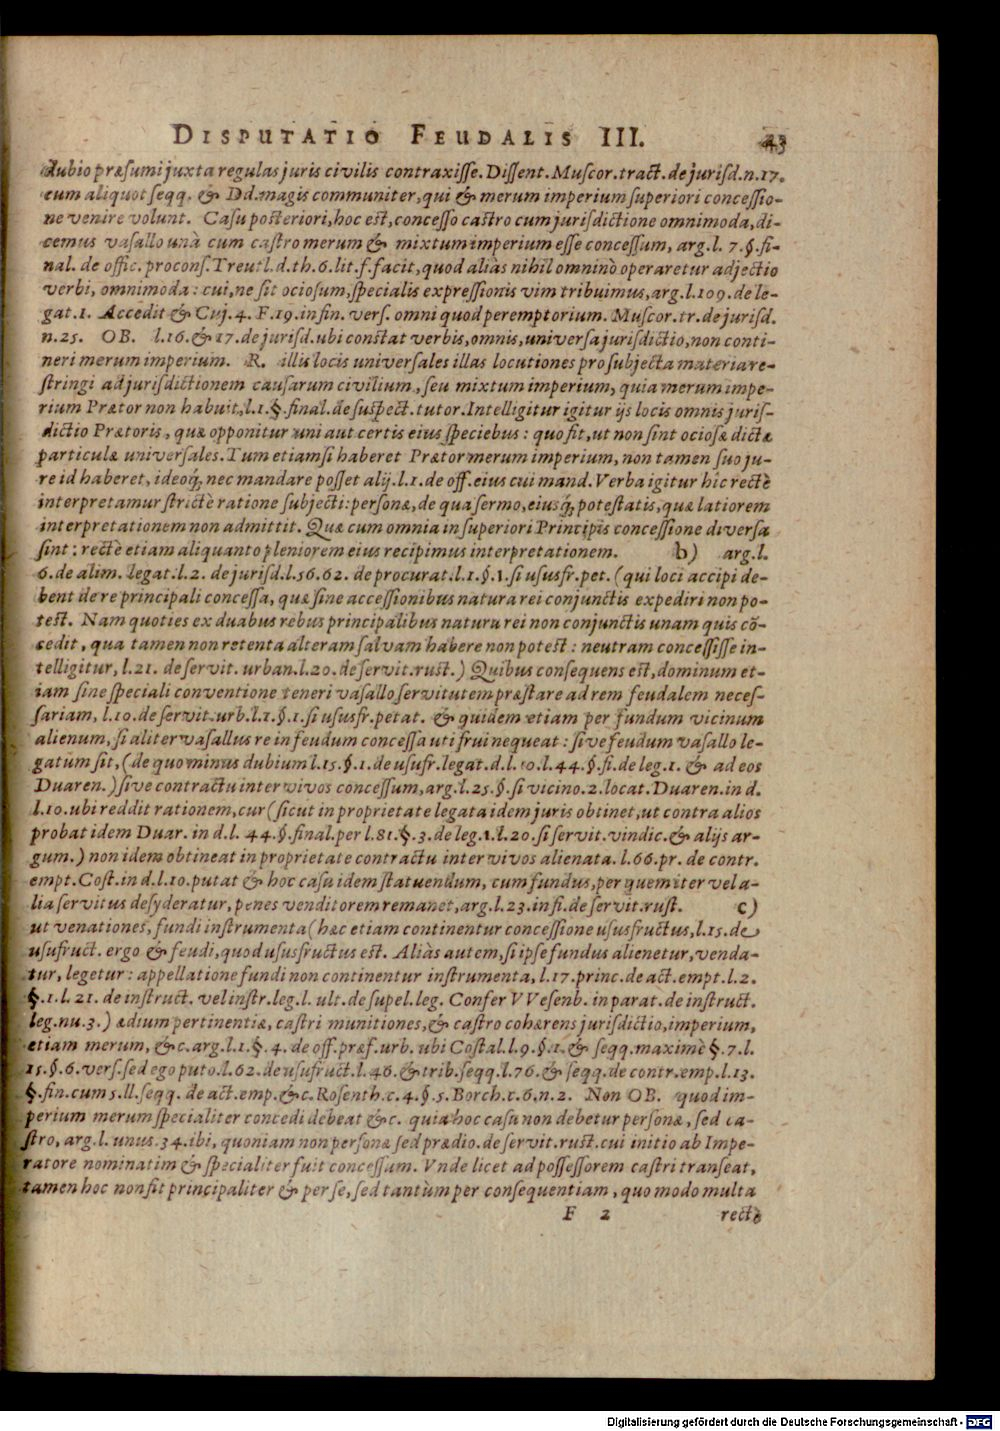 DISPUTATIO FEUDALIS III. 43
dubio præsumi juxta regulas juris civilis contraxisse. Dissent. Muscor. tract. de jurisd. n. 17.
cum aliquot seqq. & Dd. magis communiter, qui & merum imperium superiori concessio-
ne venire volunt. Casu posteriori, hoc est, concesso castro cum jurisdictione omnimoda, di-
cemus vasallo unà cum castro merum & mixtum imperium esse concessum, arg. l. 7. §. fi-
nal. de offic. procons. Treutl. d. th. 6. lit. f. facit, quod aliàs nihil omninò operaretur adjectio
verbi, omnimoda: cui, ne sit ociosum, specialis expressionis vim tribuimus, arg. l. 109. de le-
gat. 1. Accedit & Cuj. 4. F. 19. in fin. vers. omni quod peremptorium. Muscor. tr. de jurisd.
n. 25. OB. l. 16. & 17. de jurisd. ubi constat verbis, omnis, universa jurisdictio, non conti-
neri merum imperium. R. illis locis universales illas locutiones pro subjecta materia re-
stringi ad jurisdictionem causarum civilium, seu mixtum imperium, quia merum impe-
rium Prætor non habuit, l. 1. §. final. de suspect. tutor. Intelligitur igitur ijs locis omnis juris-
dictio Prætoris, quæ opponitur uni aut certis eius speciebus: quo fit, ut non sint ociosæ dictæ
particulæ universales. Tum etiamsi haberet Prætor merum imperium, non tamen suo ju-
re id haberet, ideoq́, nec mandare posset alij. l. 1. de off. eius cui mand. Verba igitur hîc rectè
interpretamur strictè ratione subjecti: personæ, de qua sermo, eiusq́, potestatis, quæ latiorem
interpretationem non admittit. Quæ cum omnia in superiori Principis concessione diversa
sint: rectè etiam aliquanto pleniorem eius recipimus interpretationem. b) arg. l.
6. de alim. legat. l. 2. de jurisd. l. 56. 62. de procurat. l. 1. §. 1. si ususfr. pet. (qui loci accipi de-
bent de re principali concessa, quæ sine accessionibus natura rei conjunctis expediri non po-
test. Nam quoties ex duabus rebus principalibus natura rei non conjunctis unam quis cō-
cedit, qua tamen non retenta alteram salvam habere non potest: neutram concessisse in-
telligitur, l. 21. de servit. urban. l. 20. de servit. rust.) Quibus consequens est, dominum et-
iam sine speciali conventione teneri vasallo servitutem præstare ad rem feudalem neces-
sariam, l. 10. de servit. urb. l. 1. §. 1. si ususfr. petat. & quidem etiam per fundum vicinum
alienum, si aliter vasallus re in feudum concessa uti frui nequeat: sive feudum vasallo le-
gatum sit, (de quo minus dubium l. 15. §. 1. de usufr. legat. d. l. 10. l. 44. §. fi. de leg. 1. & ad eos
Duaren.) sive contractu inter vivos concessum, arg. l. 25. §. si vicino. 2. locat. Duaren. in d.
l. 10. ubi reddit rationem, cur (sicut in proprietate legata idem juris obtinet, ut contra alios
probat idem Duar. in d. l. 44. §. final. per l. 81. §. 3. de leg. 1. l. 20. si servit. vindic. & alijs ar-
gum.) non idem obtineat in proprietate contractu inter vivos alienata. l. 66. pr. de contr.
empt. Cost. in d. l. 10. putat & hoc casu idem statuendum, cum fundus, per quem iter vel a-
lia servitus desyderatur, penes venditorem remanet, arg. l. 23. in fi. de servit. rust. c)
ut venationes, fundi instrumenta (hæc etiam continentur concessione ususfructus, l. 15. de
usufruct. ergo & feudi, quod ususfructus est. Aliàs autem, si ipse fundus alienetur, venda-
tur, legetur: appellatione fundi non continentur instrumenta, l. 17. princ. de act. empt. l. 2.
§. 1. l. 21. de instruct. vel instr. leg. l. ult. de supel. leg. Confer VVesenb. in parat. de instruct.
leg. nu. 3.) ædium pertinentiæ, castri munitiones, & castro cohærens jurisdictio, imperium,
etiam merum, &c. arg. l. 1. §. 4. de off. præf. urb. ubi Costal. l. 9. §. 1. & seqq. maximè §. 7. l.
15. §. 6. vers. sed ego puto. l. 62. de usufruct. l. 46. & trib. seqq. l. 76. & seqq. de contr. emp. l. 13.
§. fin. cum 5. ll. seqq. de act. emp. &c. Rosenth. c. 4. §. 5. Borch. c. 6. n. 2. Non OB. quod im-
perium merum specialiter concedi debeat &c. quia hoc casu non debetur personæ, sed ca-
stro, arg. l. unus. 34. ibi, quoniam non personæ sed prædio. de servit. rust. cui initio ab Impe-
ratore nominatim & specialiter fuit concessum. Vnde licet ad possessorem castri transeat,
tamen hoc non fit principaliter & per se, sed tantùm per consequentiam, quo modo multa
F 2 rectè
Digitalisierung gefördert durch die Deutsche Forschungsgemeinschaft - DFG